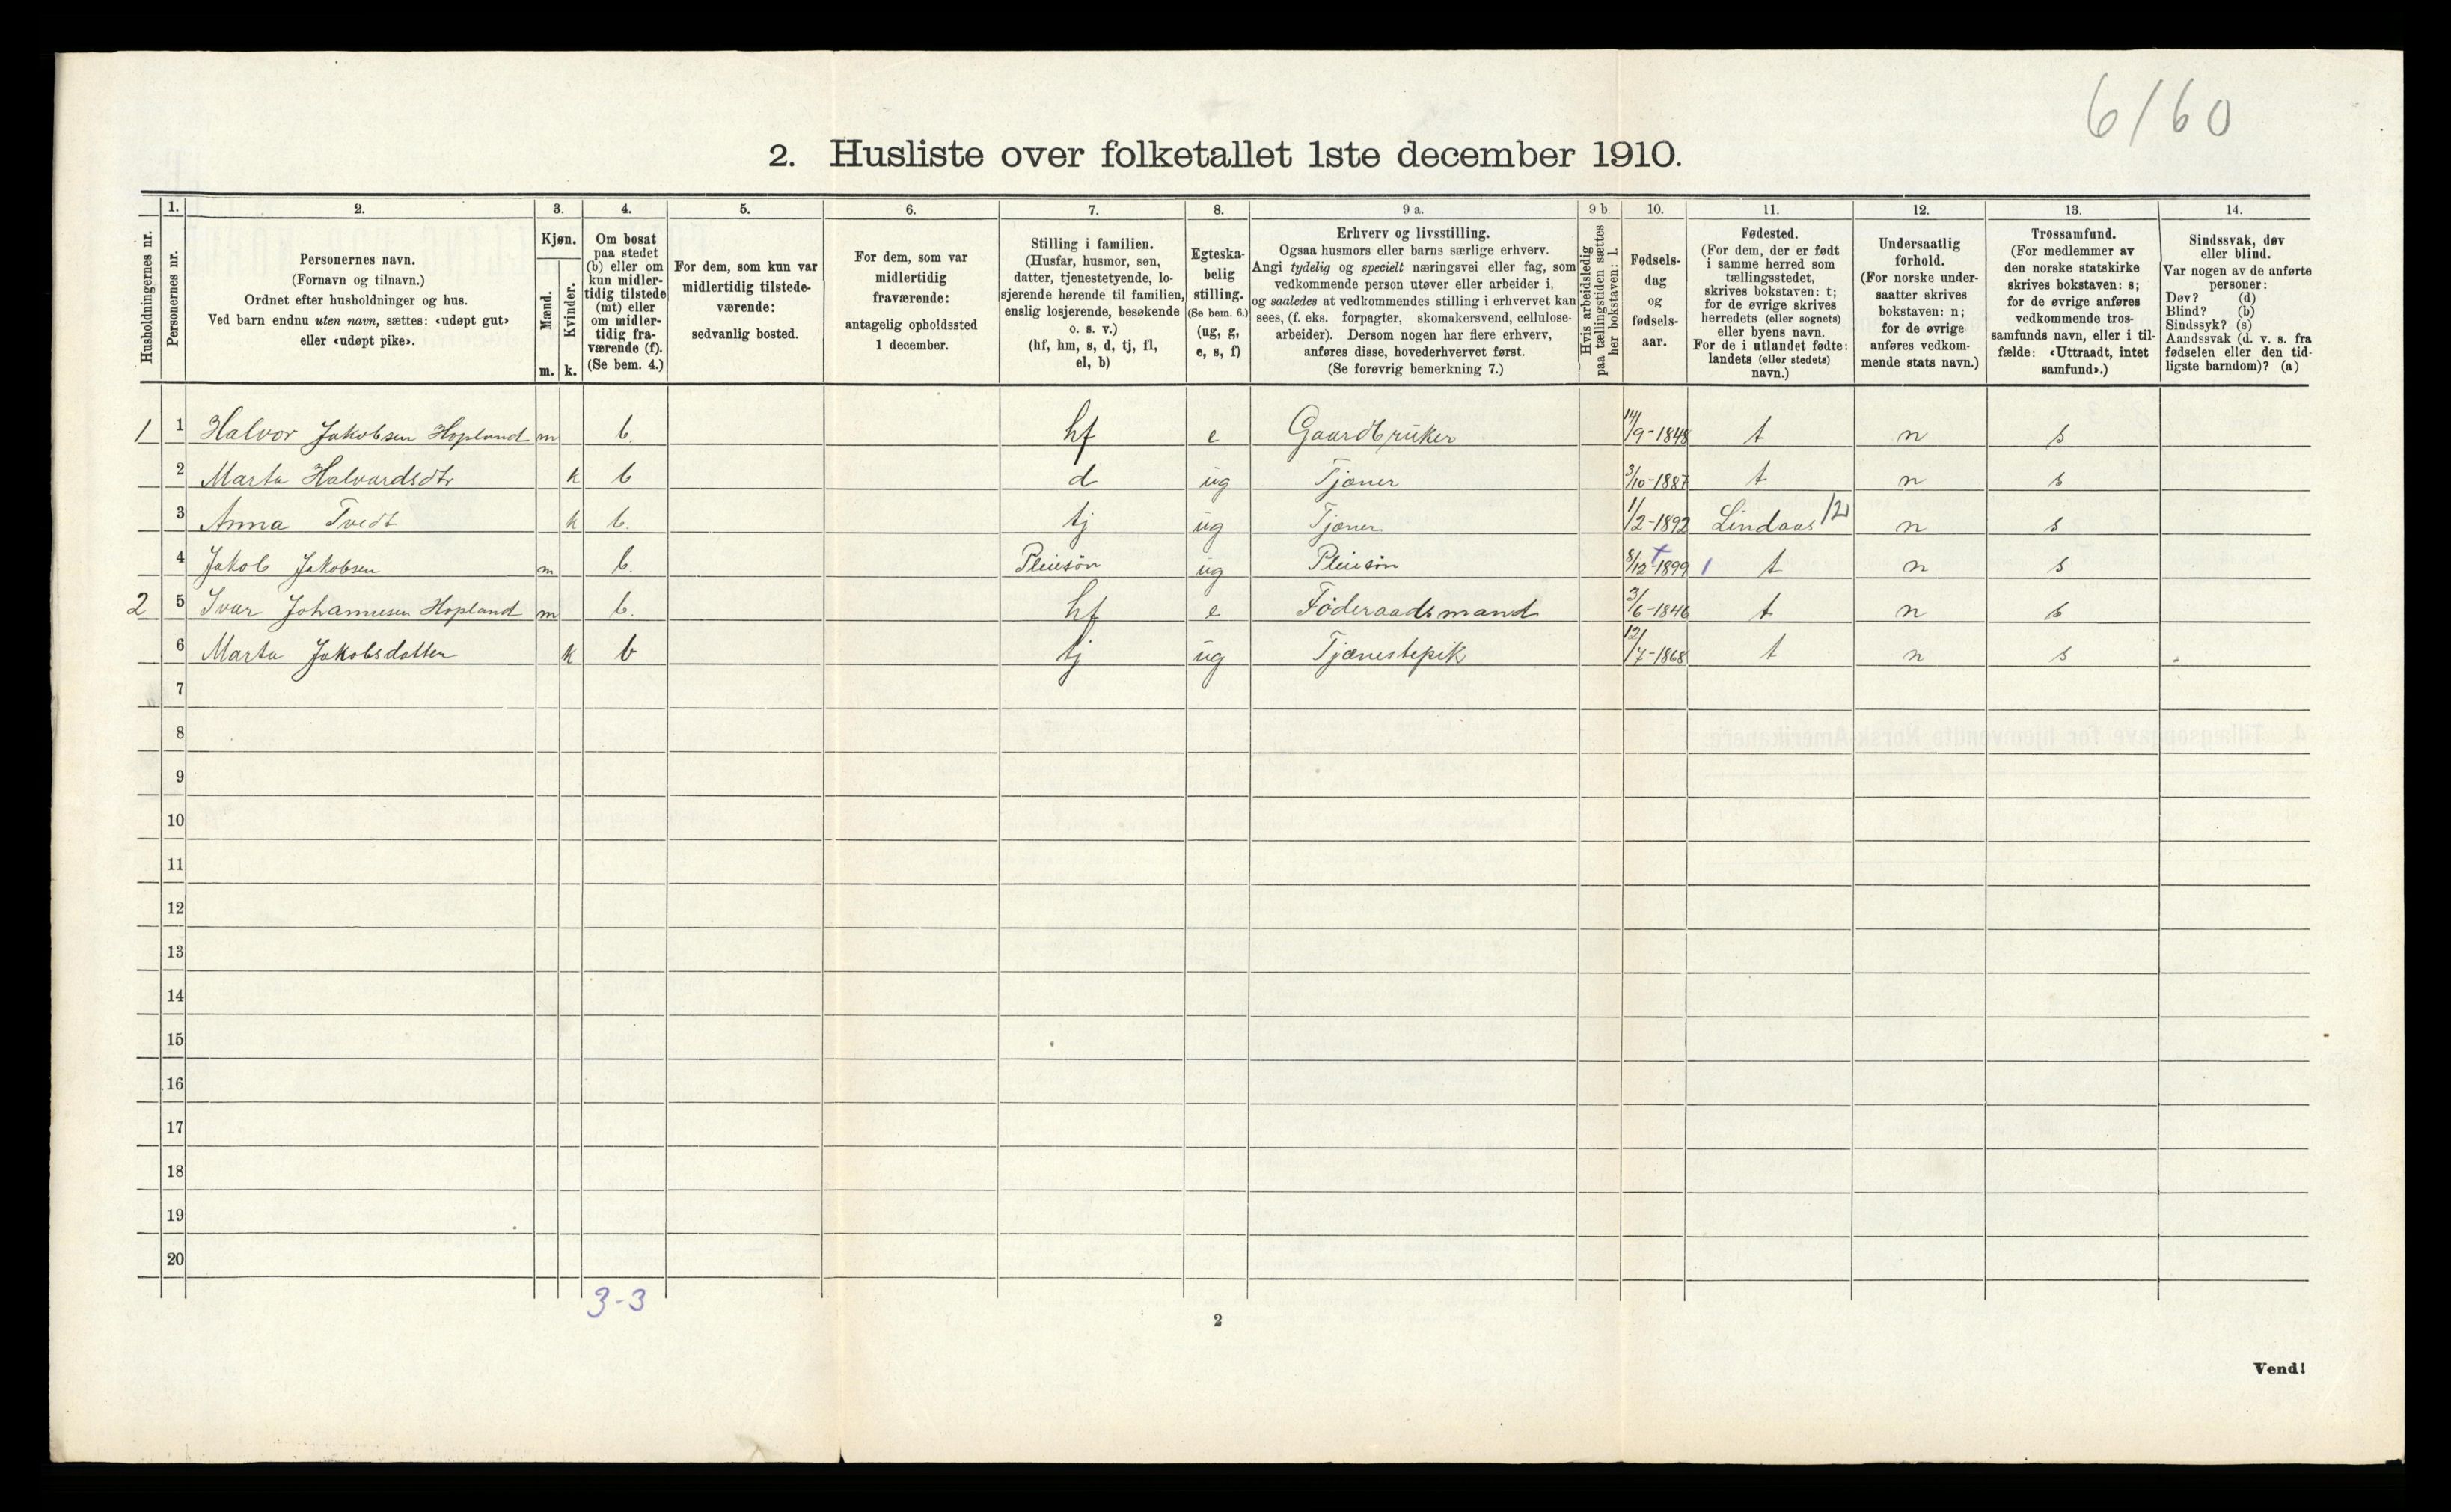 6/60
2. Husliste over folketallet 1ste december 1910.
Husholdningernes nr.
1.
Personernes nr.
2.
Personernes navn.
(Fornavn og tilnavn.)
Ordnet efter husholdninger og hus.
Ved barn endnu uten navn, sættes: «udøpt gut»
eller «udøpt pike».
3.
Kjøn.
Mænd.
Kvinder.
m. k.
4.
Om bosat
paa stedet
(b) eller om
kun midler-
tidig tilstede
(mt) eller
om midler-
tidig fra-
værende (f).
(Se bem. 4.)
5.
For dem, som kun var
midlertidig tilstede-
værende:
sedvanlig bosted.
6.
For dem, som var
midlertidig
fraværende:
antagelig opholdssted
1 december.
7.
Stilling i familien.
(Husfar, husmor, søn,
datter, tjenestetyende, lo-
sjerende hørende til familien,
enslig losjerende, besøkende
o. s. v.)
(hf, hm, s, d, tj, fl,
el, b)
8.
Egteska-
belig
stilling.
(Se bem. 6.)
(ug, g,
e, s, f)
9 a.
Erhverv og livsstilling.
Ogsaa husmors eller barns særlige erhverv.
Angi tydelig og specielt næringsvei eller fag, som
vedkommende person utøver eller arbeider i,
og saaledes at vedkommendes stilling i erhvervet kan
sees, (f. eks. forpagter, skomakersvend, cellulose-
arbeider). Dersom nogen har flere erhverv,
anføres disse, hovederhvervet først.
(Se forøvrig bemerkning 7.)
9 b
Hvis arbeidsledig
paa tællingstiden sættes
her bokstaven: l.
10.
Fødsels-
dag
og
fødsels-
aar.
11.
Fødested.
(For dem, der er født
i samme herred som
tællingsstedet,
skrives bokstaven: t;
for de øvrige skrives
herredets (eller sognets)
eller byens navn.
For de i utlandet fødte:
landets (eller stedets)
navn.)
12.
Undersaatlig
forhold.
(For norske under-
saatter skrives
bokstaven: n;
for de øvrige
anføres vedkom-
mende stats navn.)
13.
Trossamfund.
(For medlemmer av
den norske statskirke
skrives bokstaven: s;
for de øvrige anføres
vedkommende tros-
samfunds navn, eller i til-
fælde: «Uttraadt, intet
samfund».)
14.
Sindssvak, døv
eller blind.
Var nogen av de anførte
personer:
Døv? (d)
Blind? (b)
Sindssyk? (s)
Aandssvak (d. v. s. fra
fødselen eller den tid-
ligste barndom)? (a)
1 1 Halvor Jakobsen Hopland m b. hf e Gaardbruker 14/9-1848 t n s
2 Marta Halvardsdtr k b d ug Tjæner 3/10-1887 t n s
3 Anna Tvedt k b. tj ug Tjæner 1/2-1892 Lindaas 12 n s
4 Jakob Jakobsen m b. Pleiesøn ug Pleiesøn 8/12 1899 1 t n s
2 5 Ivar Johannesen Hopland m b. hf e Føderaadsmand 3/6-1846 t n s
6 Marta Jakobsdatter k b tj ug Tjænestepik 12/7-1868 t n s
7
8
9
10
11
12
13
14
15
16
17
18
19
20
3-3
2
Vend!